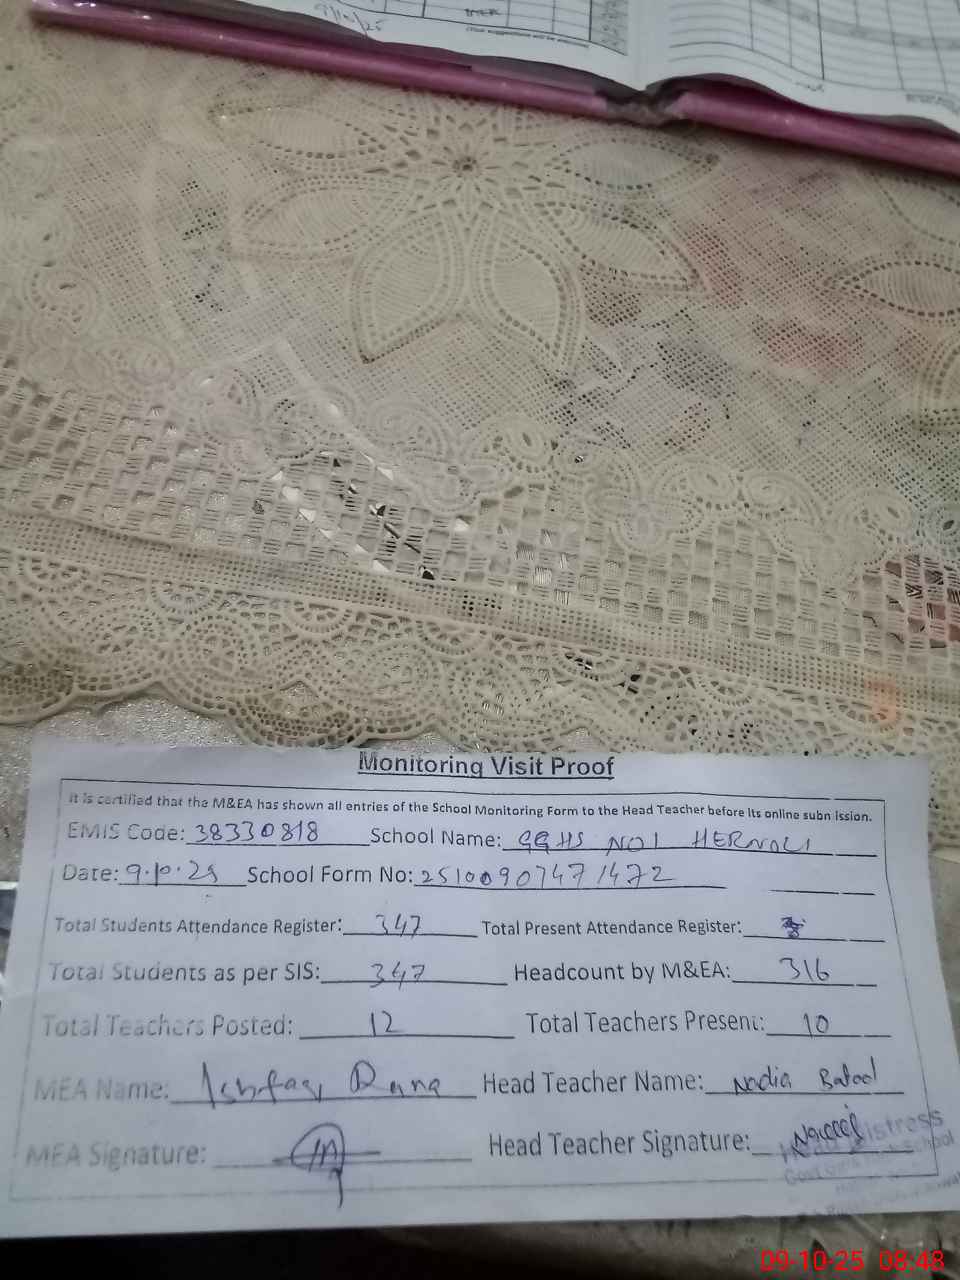 9/10/25
Monitoring Visit Proof
It is certified that the M&EA has shown all entries of the School Monitoring Form to the Head Teacher before its online subn ission.
EMIS Code: 38330818 School Name: GGHS NO1 HERNOLI
Date: 9.10.25 School Form No: 25100907471472
Total Students Attendance Register: 347 Total Present Attendance Register:
Total Students as per SIS: 347 Headcount by M&EA: 316
Total Teachers Posted: 12 Total Teachers Present: 10
MEA Name: Ishfaq Rana Head Teacher Name: Nadia Batool
MEA Signature: Head Teacher Signature:
09-10-25 08:48